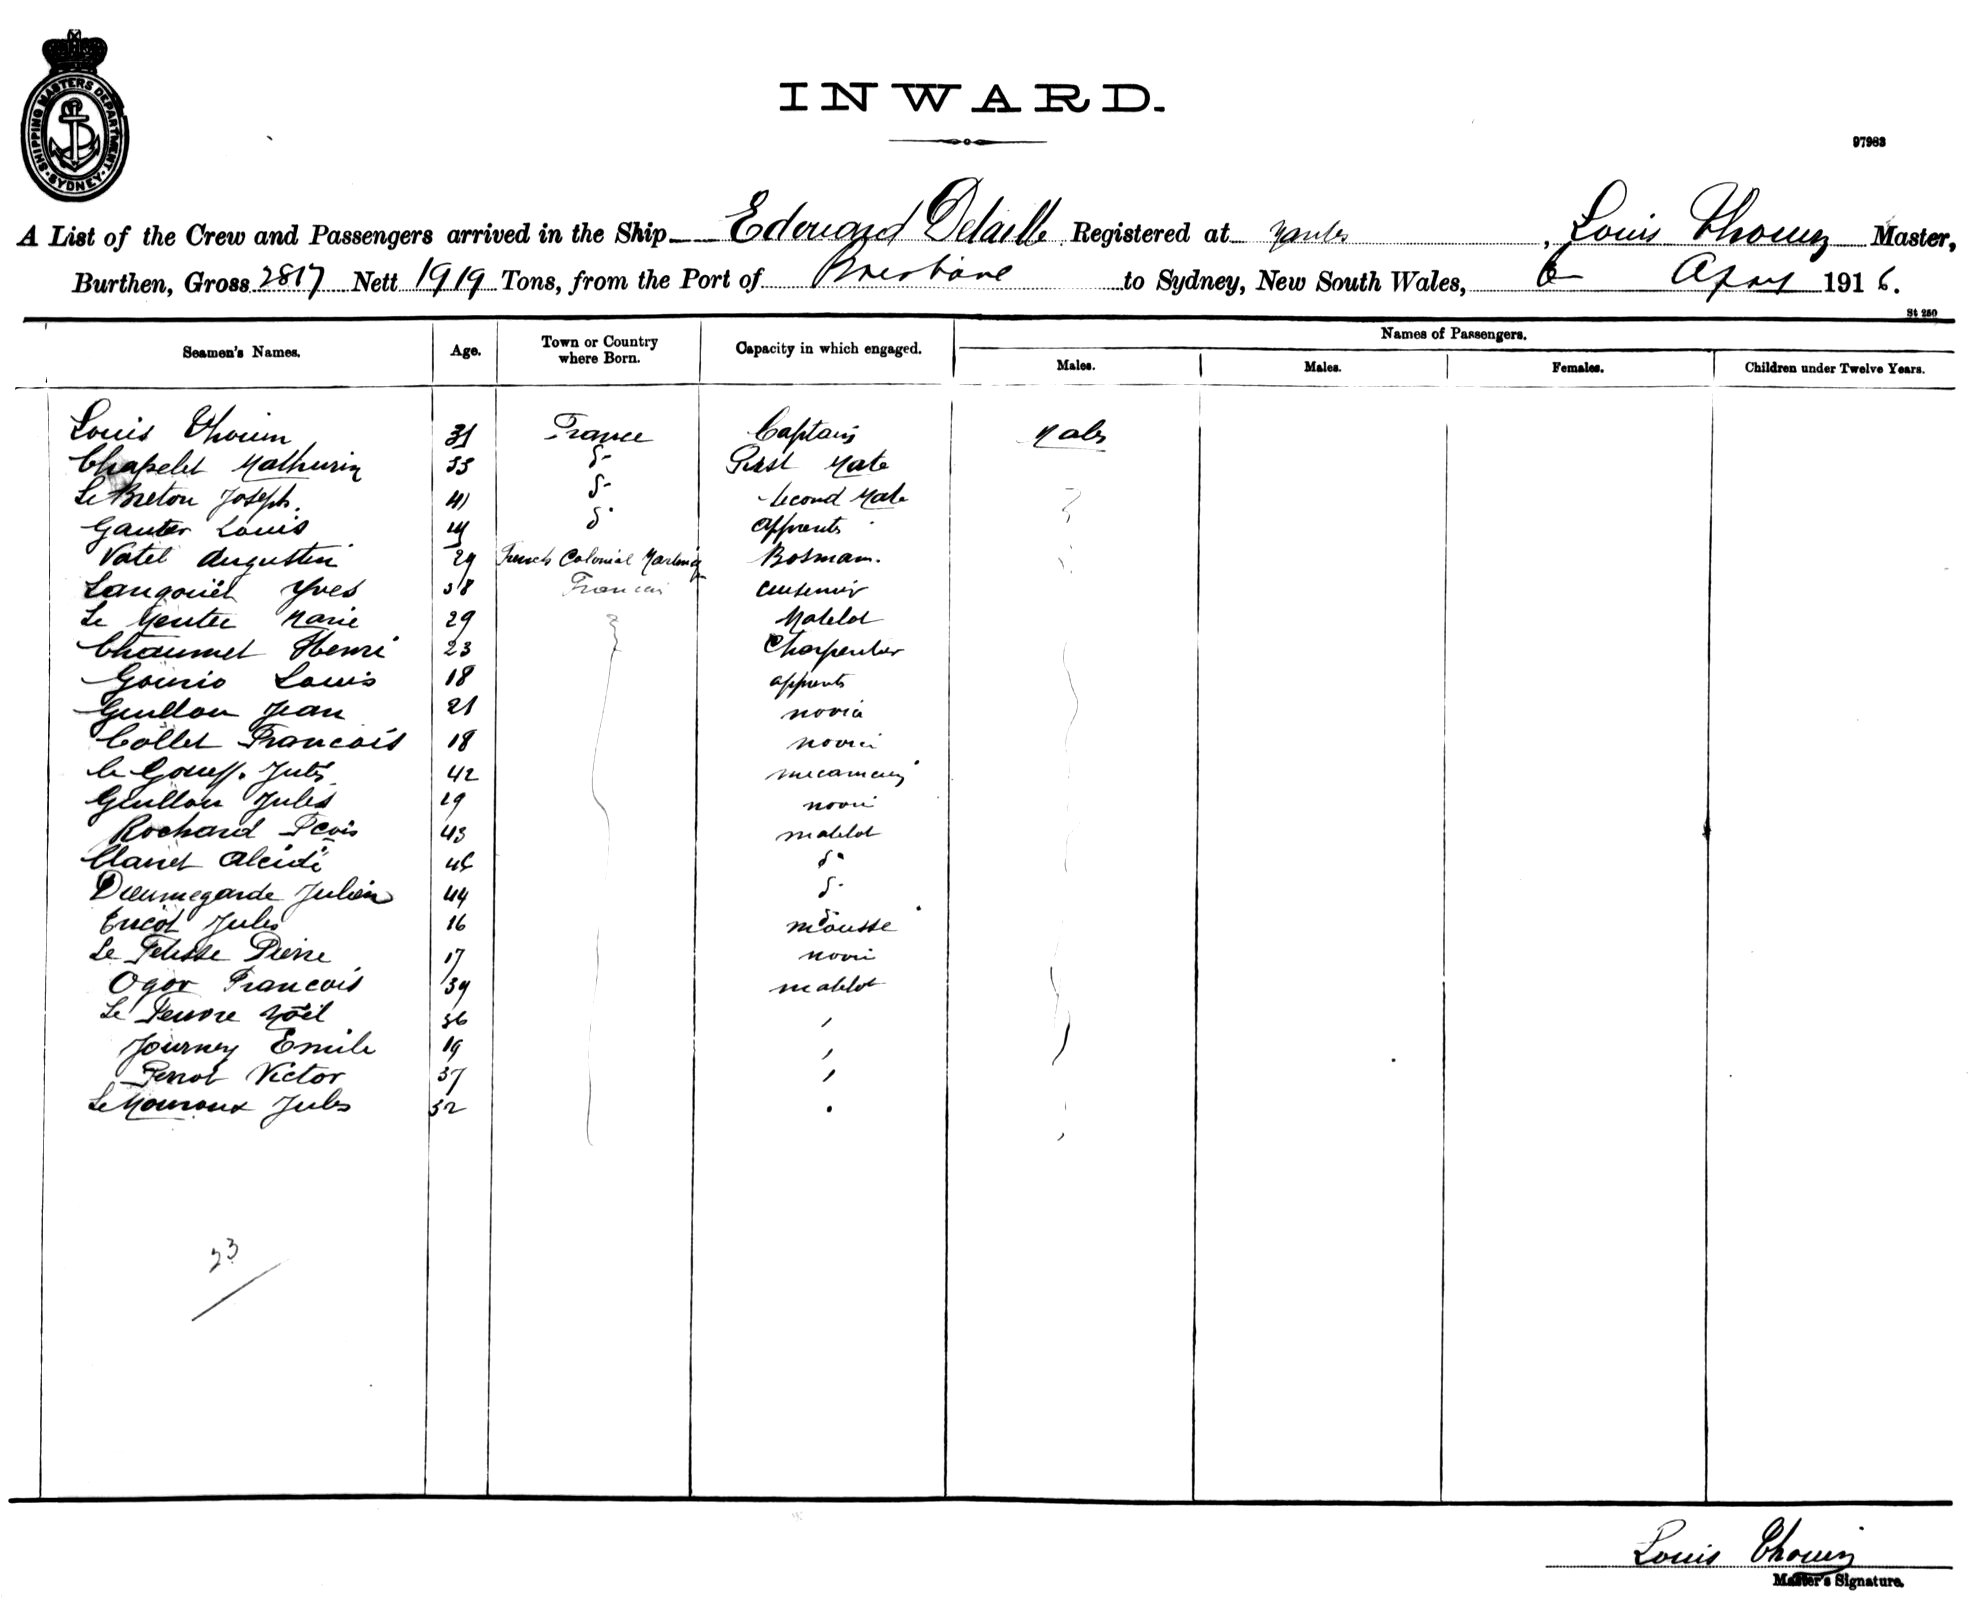 SHIPPING MASTERS DEPARTMENT. SYDNEY.
INWARD.
97983
A List of the Crew and Passengers arrived in the Ship Edouard Detaille Registered at Nantes, Louis Thouin Master,
Burthen, Gross 2817 Nett 1919 Tons, from the Port of Brisbane to Sydney, New South Wales, 6 April 1916.
St 250
Names of Passengers.
Seamen's Names. Age. Town or Country where Born. Capacity in which engaged. Males. Males. Females. Children under Twelve Years.
Louis Thouin 31 France Captain
Chapelet Mathurin 33 First Mate
Le Breton Joseph 41 Second Mate
Gautier Louis apprenti
Vatel Augustin 29 French Colonial Bosman.
Langouët Yves 38
Le Gentil Marie 29 Matelot
Chaumet Henri 23 Charpentier
Gourio Louis 18 apprenti
Guillou Jean 21 novice
Collet Francois 18 novice
Le Goueff. Jules 42
Guillou Jules 19 novice
Rochard Fcois 43 matelot
Clanet Alcide
Dieumegarde Julien 44
Ericot Jules 16 mousse
Le Pierre 17 novice
Ogor Francois 39 matelot
Le Noël 36
Journey Emile 19
Perrot Victor 37
Le Mouroux Jules 32
23
Louis Thouin
Master's Signature.